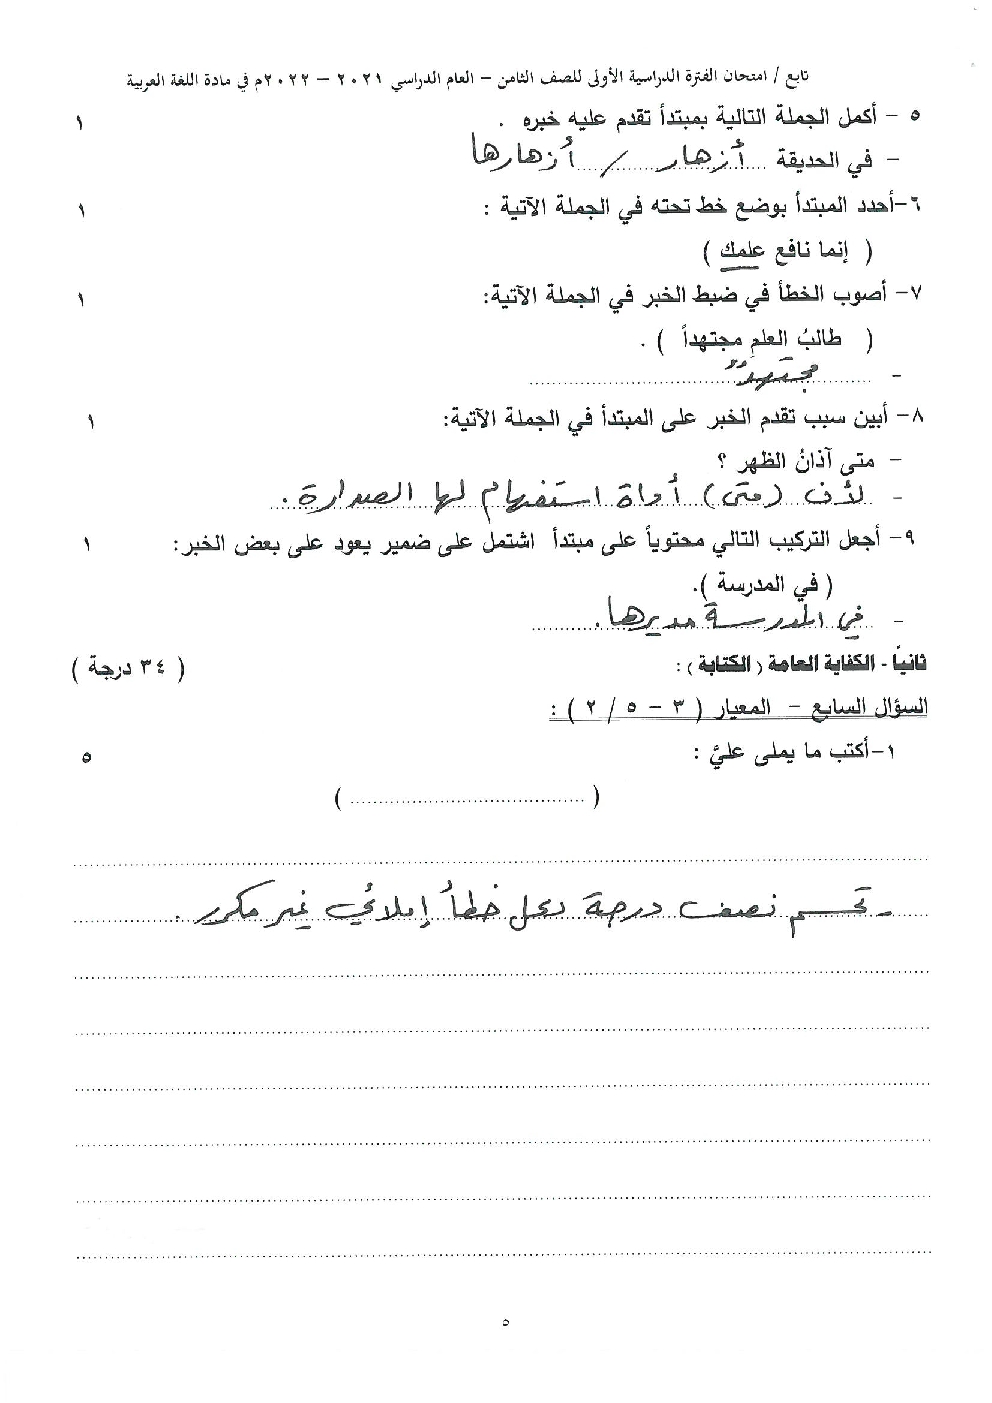 تابع / امتحان الفترة الدراسية الأولى للصف الثامن – العام الدراسي ٢٠٢١ – ٢٠٢٢م في مادة اللغة العربية
٥ – أكمل الجملة التالية بمبتدأ تقدم عليه خبره . ١
– في الحديقة أزهار / أزهارها
٦-أحدد المبتدأ بوضع خط تحته في الجملة الآتية : ١
( إنما نافع علمك )
٧- أصوب الخطأ في ضبط الخبر في الجملة الآتية: ١
( طالبُ العلم مجتهداً ) .
– مجتهدٌ
٨- أبين سبب تقدم الخبر على المبتدأ في الجملة الآتية: ١
– متى آذانُ الظهر ؟
– لأن (متى) أداة استفهام لها الصدارة .
٩- أجعل التركيب التالي محتوياً على مبتدأ اشتمل على ضمير يعود على بعض الخبر: ١
( في المدرسة ).
– في المدرسة مديرها .
ثانياً - الكفاية العامة ( الكتابة ) : ( ٣٤ درجة )
السؤال السابع – المعيار ( ٣ – ٥ / ٢ ) :
١-أكتب ما يملى عليَّ : ٥
( ........................................ )
- تحسم نصف درجة لكل خطأ إملائي غير مكرر .
٥